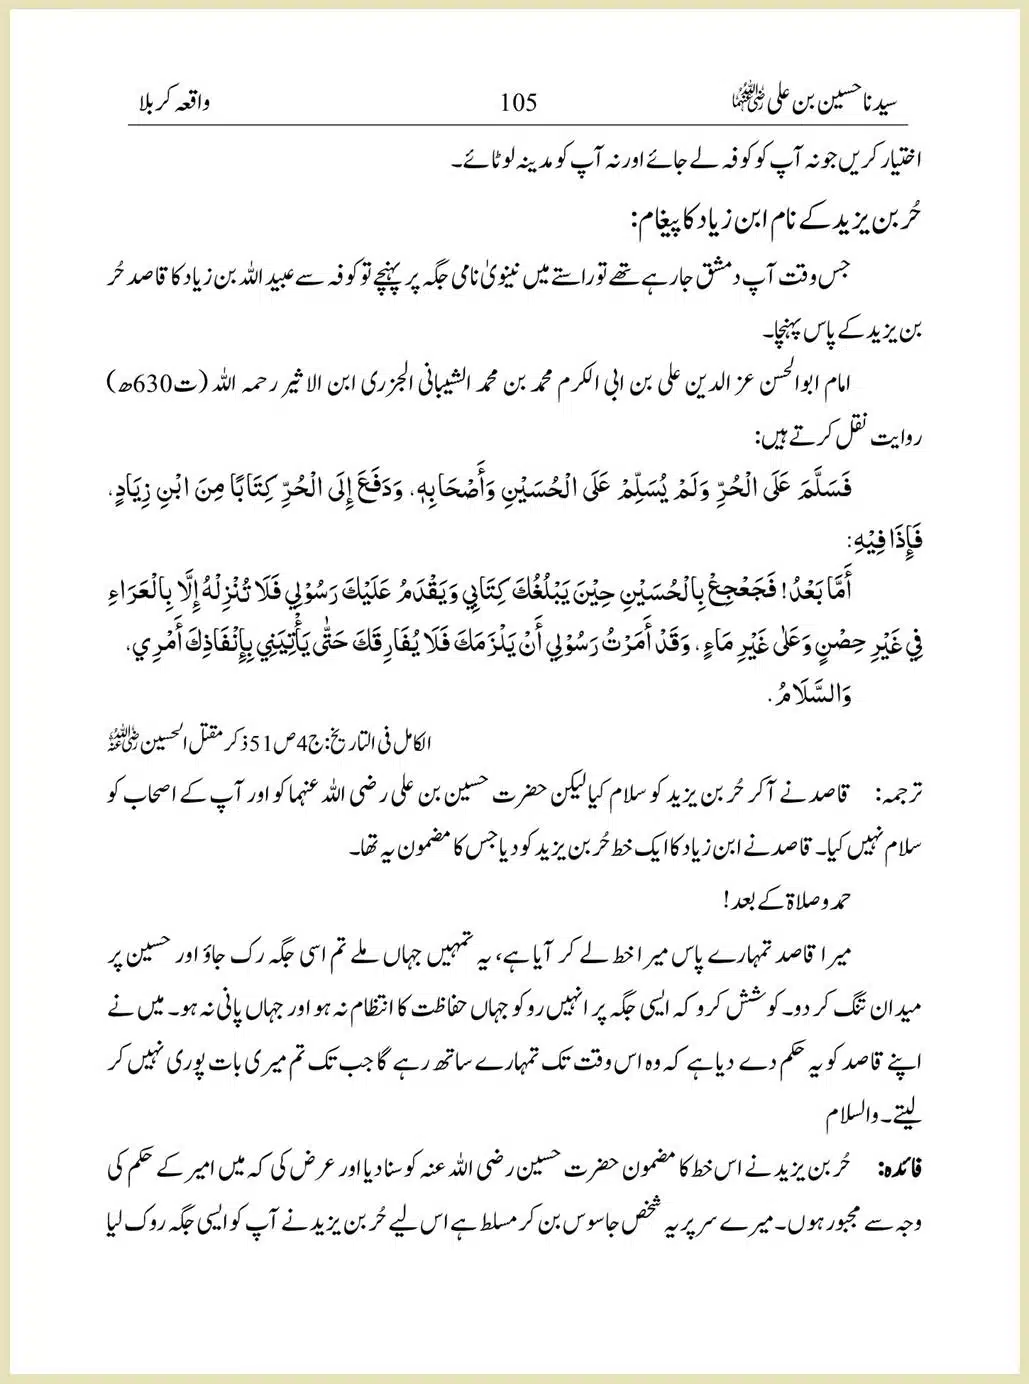 سیدنا حسین بن علی رضی اللہ عنہما 105 واقعہ کربلا
اختیار کریں جو نہ آپ کو کوفہ لے جائے اور نہ آپ کو مدینہ لوٹائے۔
حُر بن یزید کے نام ابن زیاد کا پیغام:
جس وقت آپ دمشق جا رہے تھے تو راستے میں نینویٰ نامی جگہ پر پہنچے تو کوفہ سے عبید اللہ بن زیاد کا قاصد حُر
بن یزید کے پاس پہنچا۔
امام ابو الحسن عز الدین علی بن ابی الکرم محمد بن محمد الشیبانی الجزری ابن الاثیر رحمہ اللہ (ت630ھ)
روایت نقل کرتے ہیں:
فَسَلَّمَ عَلَى الْحُرِّ وَلَمْ يُسَلِّمْ عَلَى الْحُسَيْنِ وَأَصْحَابِهٖ، وَدَفَعَ إِلَى الْحُرِّ كِتَابًا مِنَ ابْنِ زِيَادٍ،
فَإِذَا فِيْهِ:
أَمَّا بَعْدُ! فَجَعْجِعْ بِالْحُسَيْنِ حِيْنَ يَبْلُغُكَ كِتَابِي وَيَقْدَمُ عَلَيْكَ رَسُوْلِي فَلَا تُنْزِلْهُ إِلَّا بِالْعَرَاءِ
فِي غَيْرِ حِصْنٍ وَعَلٰى غَيْرِ مَاءٍ، وَقَدْ أَمَرْتُ رَسُوْلِي أَنْ يَلْزَمَكَ فَلَا يُفَارِقَكَ حَتّٰى يَأْتِيَنِي بِإِنْفَاذِكَ أَمْرِي،
وَالسَّلَامُ.
الکامل فی التاریخ: ج4ص51 ذکر مقتل الحسین رضی اللہ عنہ
ترجمہ: قاصد نے آ کر حُر بن یزید کو سلام کیا لیکن حضرت حسین بن علی رضی اللہ عنہما کو اور آپ کے اصحاب کو
سلام نہیں کیا۔ قاصد نے ابن زیاد کا ایک خط حُر بن یزید کو دیا جس کا مضمون یہ تھا۔
حمد و صلاۃ کے بعد!
میرا قاصد تمہارے پاس میرا خط لے کر آیا ہے، یہ تمہیں جہاں ملے تم اسی جگہ رک جاؤ اور حسین پر
میدان تنگ کر دو۔ کوشش کرو کہ ایسی جگہ پر انہیں روکو جہاں حفاظت کا انتظام نہ ہو اور جہاں پانی نہ ہو۔ میں نے
اپنے قاصد کو یہ حکم دے دیا ہے کہ وہ اس وقت تک تمہارے ساتھ رہے گا جب تک تم میری بات پوری نہیں کر
لیتے۔ والسلام
فائدہ: حُر بن یزید نے اس خط کا مضمون حضرت حسین رضی اللہ عنہ کو سنا دیا اور عرض کی کہ میں امیر کے حکم کی
وجہ سے مجبور ہوں۔ میرے سر پر یہ شخص جاسوس بن کر مسلط ہے اس لیے حُر بن یزید نے آپ کو ایسی جگہ روک لیا